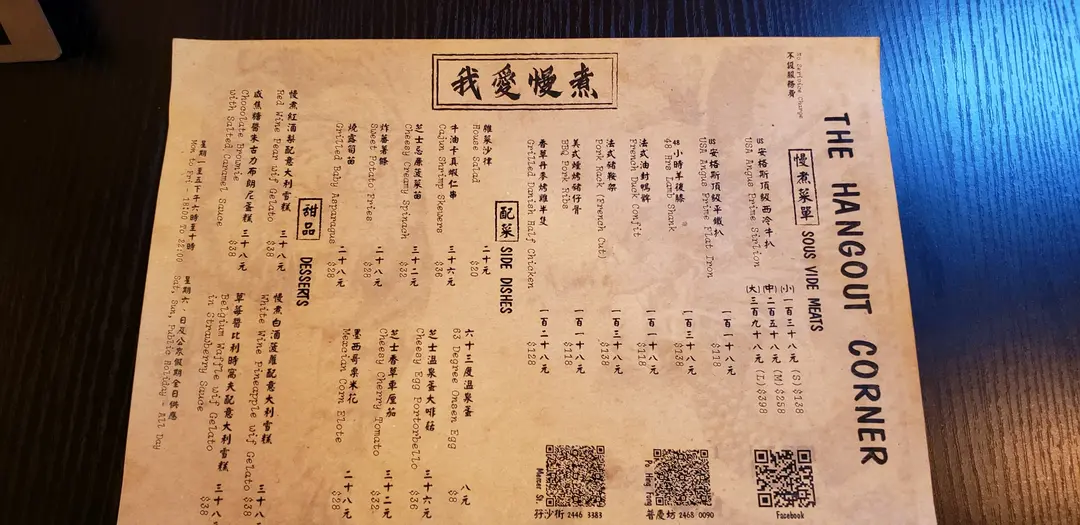 我愛慢煮
THE HANGOUT CORNER
不設服務費
慢煮菜單 SOUS VIDE MEATS
US安格斯頂級西冷牛扒 (小)一百三十八元 (S) $138
USA Angus Prime Sirlion (中)二百五十八元 (M) $258
(大)三百九十八元 (L) $398
US安格斯頂級平鐵扒 一百一十八元
USA Angus Prime Flat Iron $118
48小時羊後膝 一百三十八元
48 Hrs Lamb Shank $138
法式油封鴨髀 一百一十八元
French Duck Confit $118
法式豬鞍架 一百三十八元
Pork Rack (French Cut) $138
美式燒烤豬仔骨 一百一十八元
BBQ Pork Ribs $118
香草丹麥烤雞半隻 一百二十八元
Grilled Danish Half Chicken $128
配菜 SIDE DISHES
雜菜沙律 二十元
House Salad $20
牛油卡真蝦仁串 三十六元
Cajun Shrimp Skewers $36
芝士忌廉菠菜苗 三十二元
Cheesy Creamy Spinach $32
炸蕃薯條 二十八元
Sweet Potato Fries $28
燒露筍苗 二十八元
Grilled Baby Asparagus $28
六十三度温泉蛋 八元
63 Degree Onsen Egg $8
芝士温泉蛋大啡菇 三十六元
Cheesy Egg Portorbello $36
芝士香草車厘茄 三十二元
Cheesy Cherry Tomato $32
墨西哥粟米花 二十八元
Mexcian Corn Elote $28
甜品 DESSERTS
慢煮紅酒梨配意大利雪糕 三十八元
Red Wine Pear wif Gelato $38
咸焦糖醬朱古力布朗尼蛋糕 三十八元
Chocolate Brownie $38
with Salted Caramel Sauce
慢煮白酒菠蘿配意大利雪糕 三十八元
White Wine Pineapple wif Gelato $38
草莓醬比利時窩夫配意大利雪糕 三十八
Belgium Waffle wif Gelato $38
in Strawberry Sauce
星期一至五下午六時至十時 星期六,日及公眾假期全日供應
Mon to Fri - 18:00 To 22:00 Sat, Sun, Public Holiday - All Day
Facebook
Po Hing Fong
普慶坊 2468 0090
Mercer St.
孖沙街 2446 3383